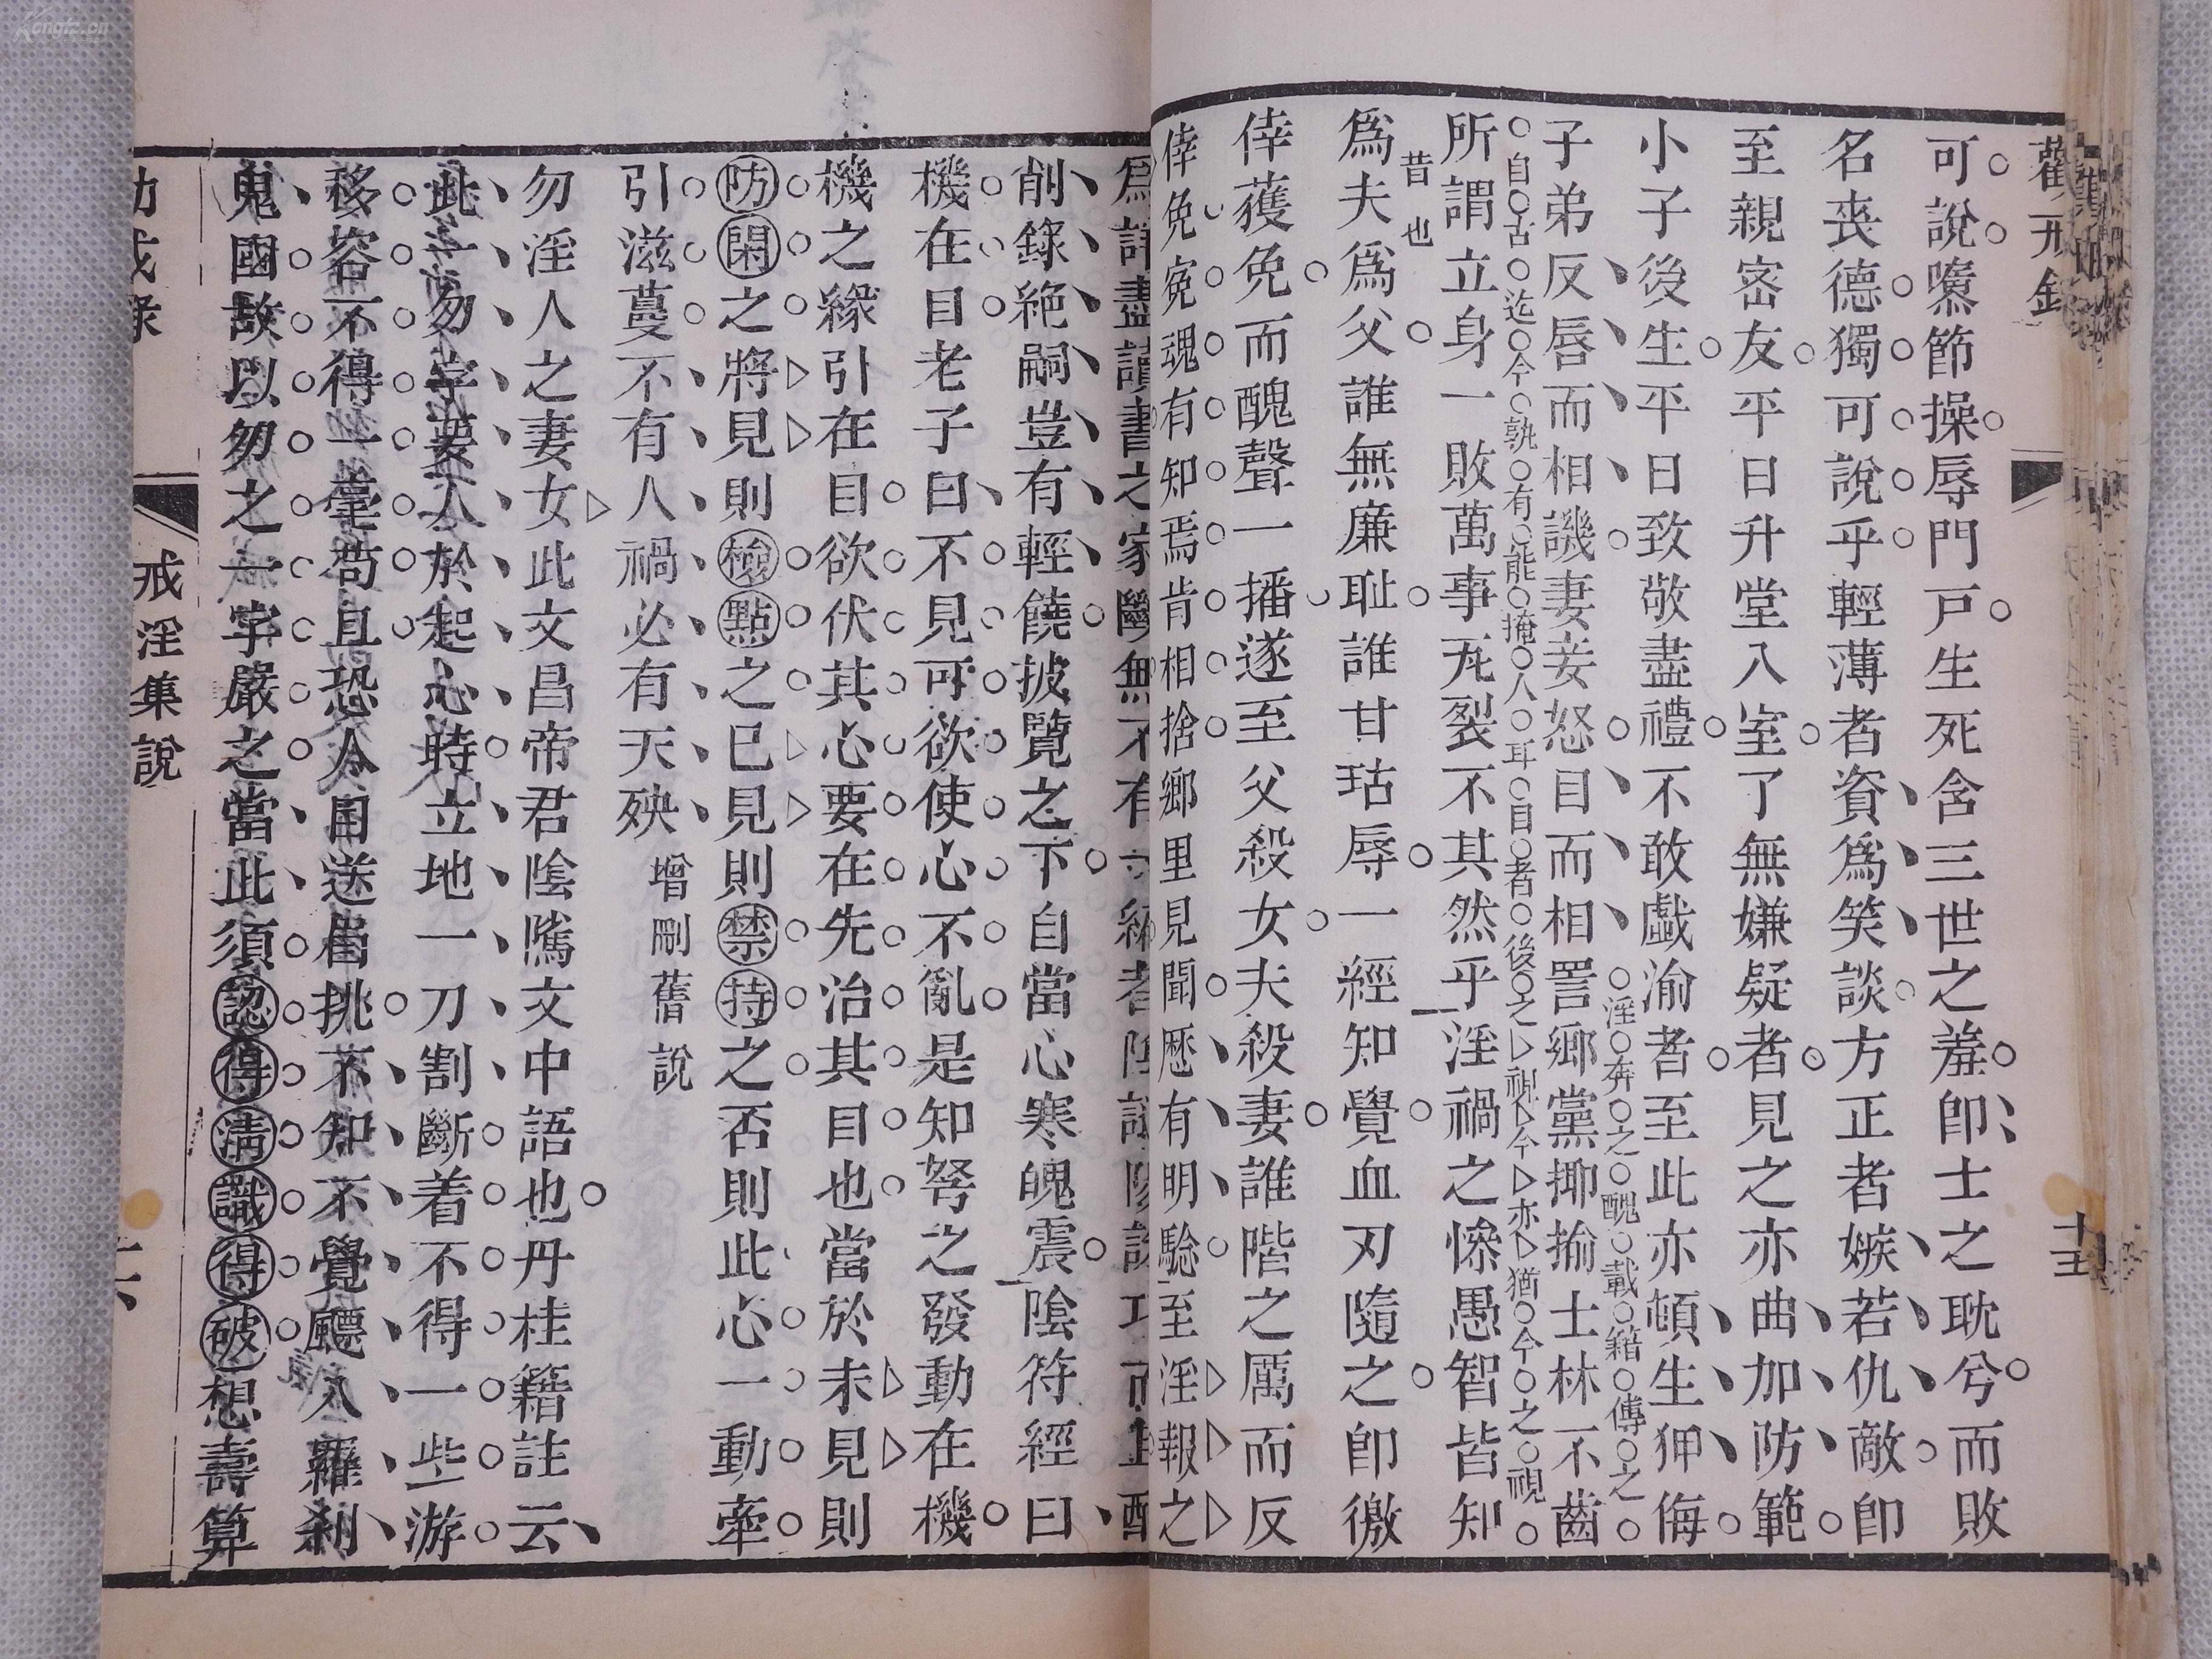 勸戒錄
十五
可說隳節操辱門戸生死含三世之羞卽士之耽兮而敗
名喪德獨可說乎輕薄者資爲笑談方正者嫉若仇敵卽
至親密友平日升堂入室了無嫌疑者見之亦曲加防範
小子後生平日致敬盡禮不敢戯渝者至此亦頓生狎侮
淫奔之醜載籍傳之
子弟反唇而相譏妻妾怒目而相詈鄉黨揶揄士林不齒
自古迄今孰有能掩人耳目者後之視今亦猶今之視
昔也
所謂立身一敗萬事瓦裂不其然乎淫禍之慘愚智皆知
爲夫爲父誰無廉耻誰甘玷辱一經知覺血刃隨之卽徼
倖獲免而醜聲一播遂至父殺女夫殺妻誰階之厲而反
倖免寃魂有知焉肯相捨鄉里見聞歷有明騐至淫報之
爲詳盡讀書之家
削錄絶嗣豈有輕饒披覽之下自當心寒魄震陰符經曰
機在目老子曰不見可欲使心不亂是知弩之發動在機
機之緣引在目欲伏其心要在先治其目也當於未見則
防閑之將見則檢點之已見則禁持之否則此心一動牽
引滋蔓不有人禍必有天殃
增刪舊說
勿淫人之妻女此文昌帝君陰隲文中語也丹桂籍註云
此一勿字要人於起心時立地一刀割斷着不得一些游
移容不得一毫苟且恐人目送眉挑不知不覺飄入羅刹
鬼國故以勿之一字嚴之當此須認得淸識得破想壽算
戒淫集說